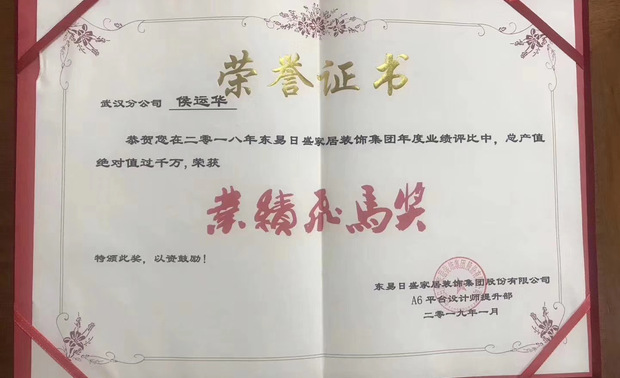 荣誉证书
武汉分公司 侯运华
恭贺您在二零一八年东易日盛家居装饰集团年度业绩评比中，总产值
绝对值过千万，荣获
业绩飛馬奖
特颁此奖，以资鼓励！
东易日盛家居装饰集团股份有限公司
A6平台设计师提升部
二零一九年一月